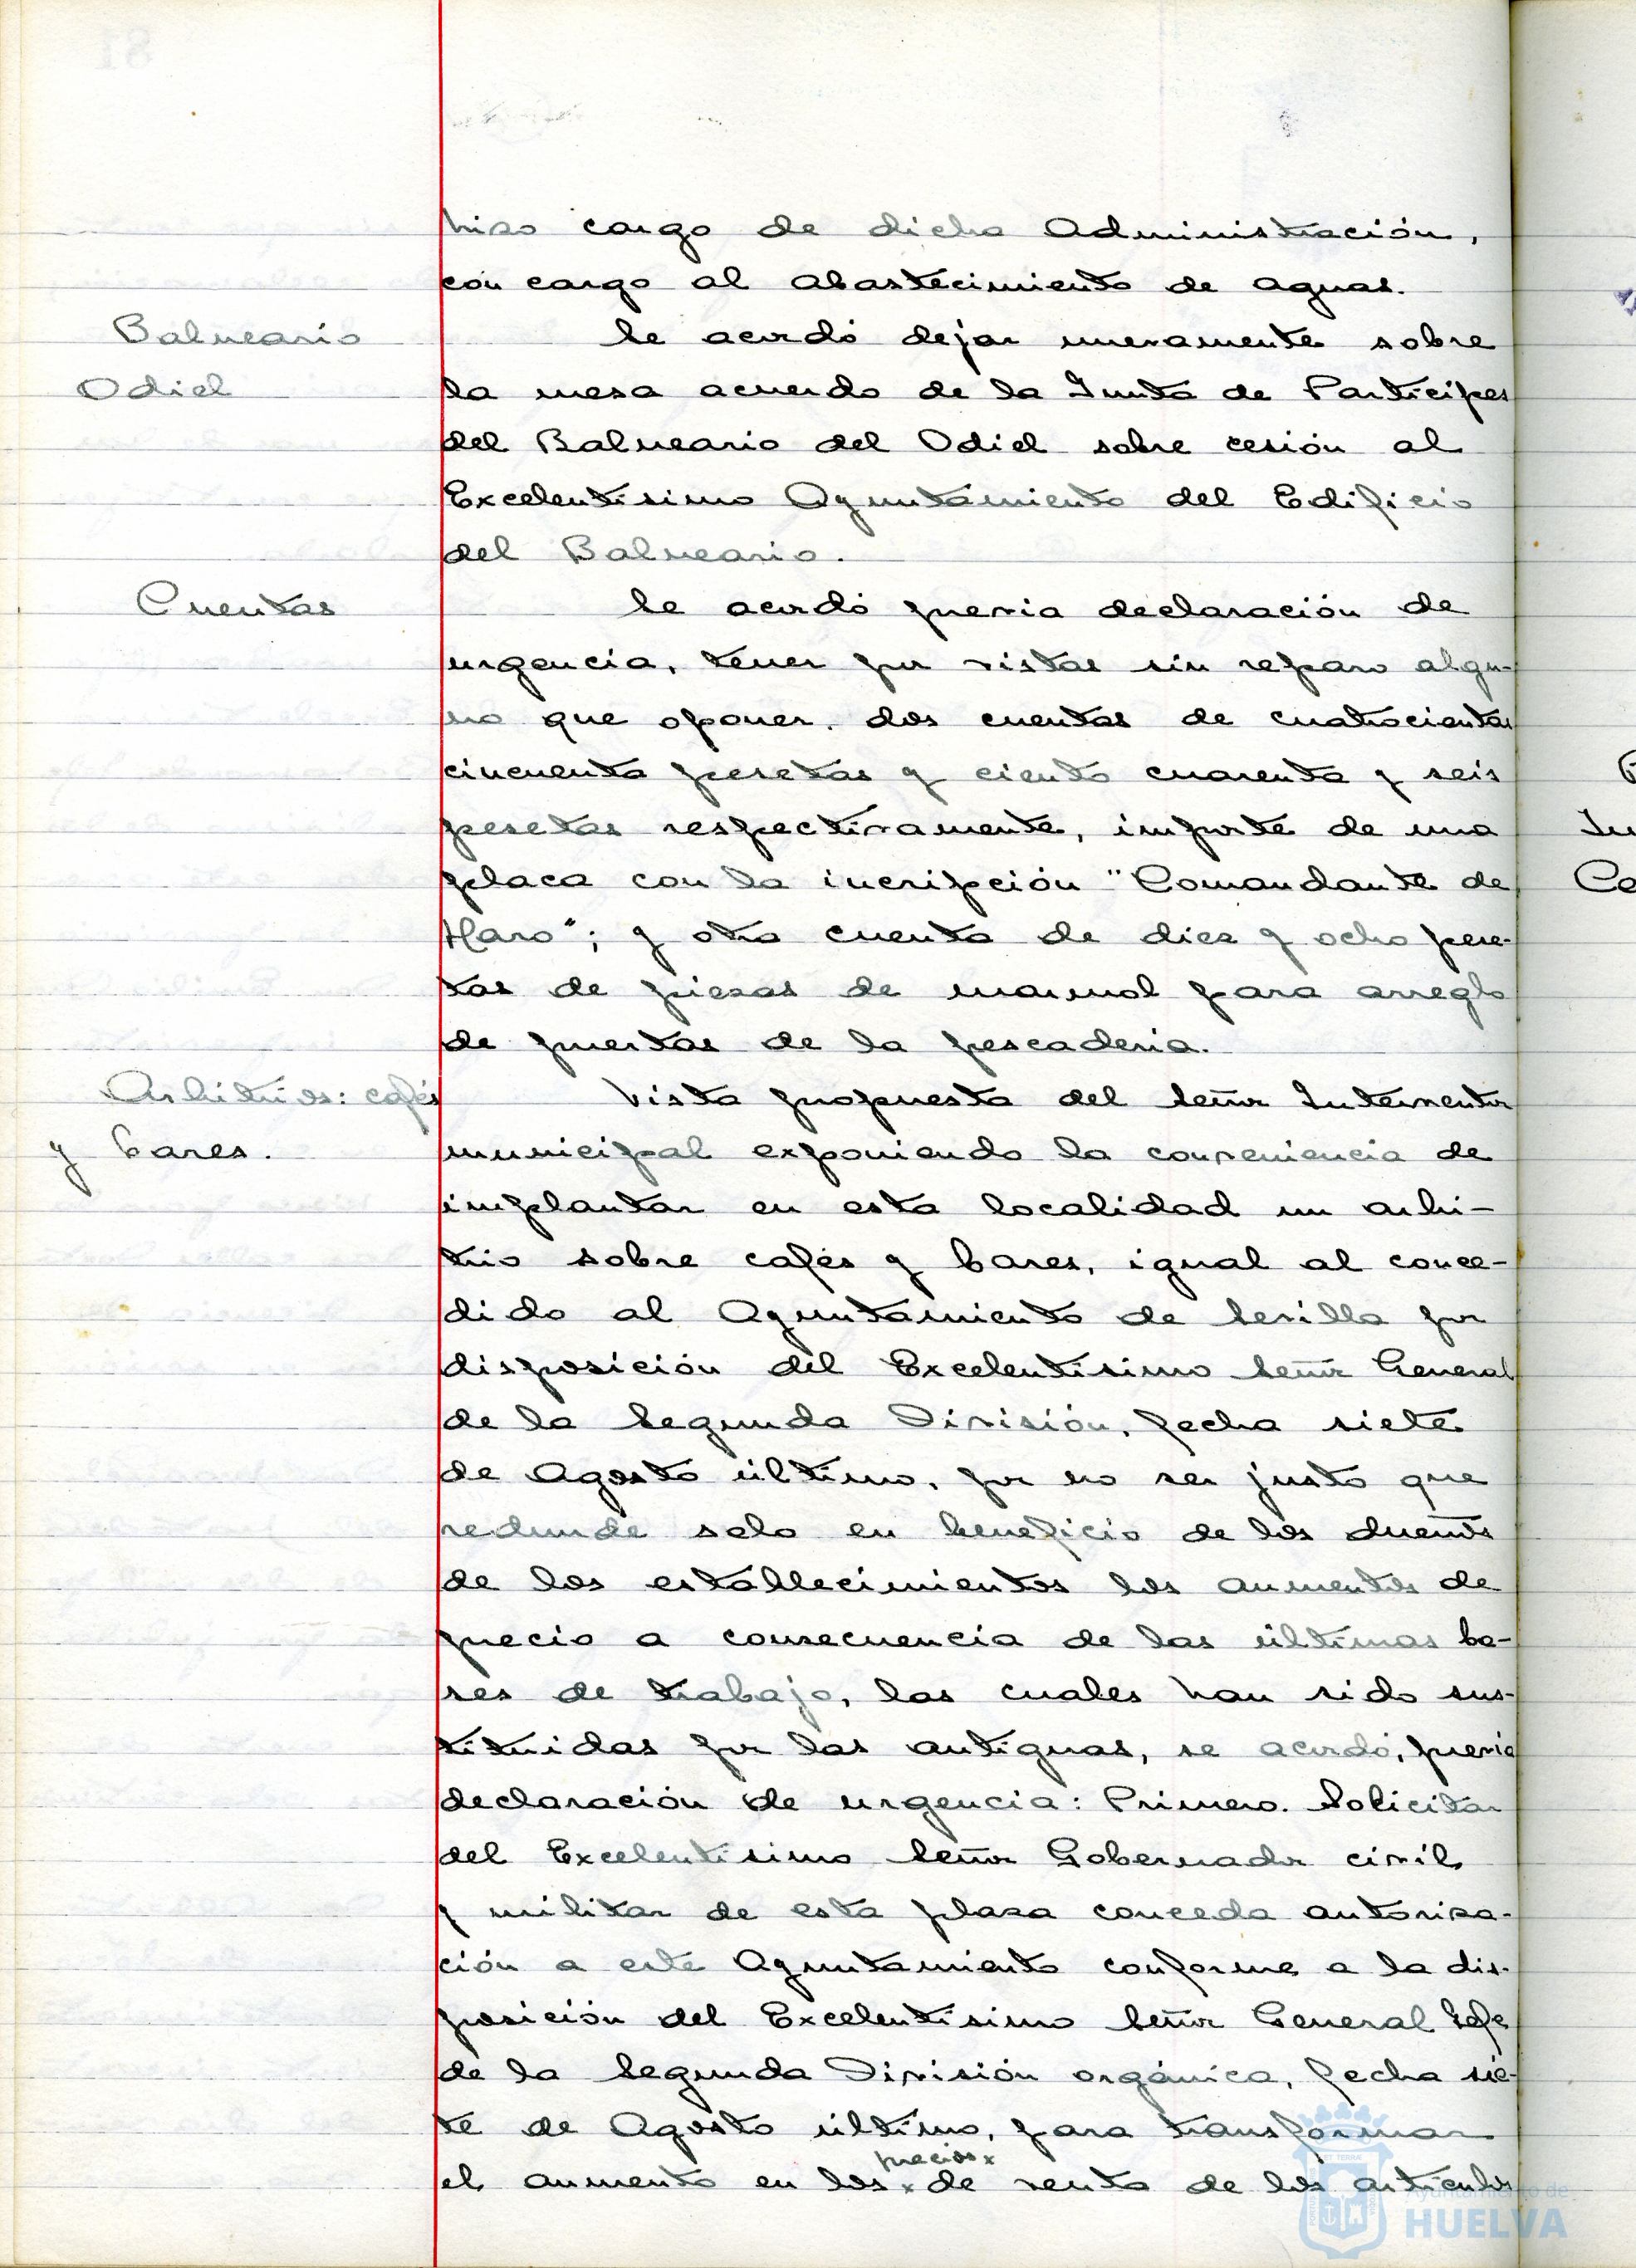 hizo cargo de dicha Administración,
con cargo al abastecimiento de aguas.
Balneario
Odiel
Se acordó dejar nuevamente sobre
la mesa acuerdo de la Junta de Partícipes
del Balneario del Odiel sobre cesión al
Excelentísimo Ayuntamiento del Edificio
del Balneario.
Cuentas
Se acordó previa declaración de
urgencia, tener por vistas sin reparo algu-
no que oponer, dos cuentas de cuatrocientas
cincuenta pesetas y ciento cuarenta y seis
pesetas respectivamente, importe de una
placa con la incripción "Comandante de
Haro"; y otra cuenta de diez y ocho pese-
tas de piezas de marmol para arreglo
de puertas de la pescaderia.
Arbitrios: cafés
y bares.
Vista propuesta del Señor Interventor
municipal exponiendo la conveniencia de
implantar en esta localidad un arbi-
trio sobre cafés y bares, igual al conce-
dido al Ayuntamiento de Sevilla por
disposición del Excelentísimo Señor General
de la Segunda División, fecha siete
de Agosto último, por no ser justo que
redunde solo en beneficio de los dueños
de los establecimientos los aumentos de
precio a consecuencia de las últimas ba-
ses de trabajo, las cuales han sido sus-
tituidas por las antiguas, se acordó, previa
declaración de urgencia: Primero. Solicitar
del Excelentísimo Señor Gobernador civil
y militar de esta plaza conceda autoriza-
ción a este Ayuntamiento conforme a la dis-
posición del Excelentísimo Señor General Jefe
de la Segunda División orgánica, fecha sie-
te de Agosto último, para transformar
el aumento en los x precios x de venta de los artículos
Ayuntamiento de
HUELVA